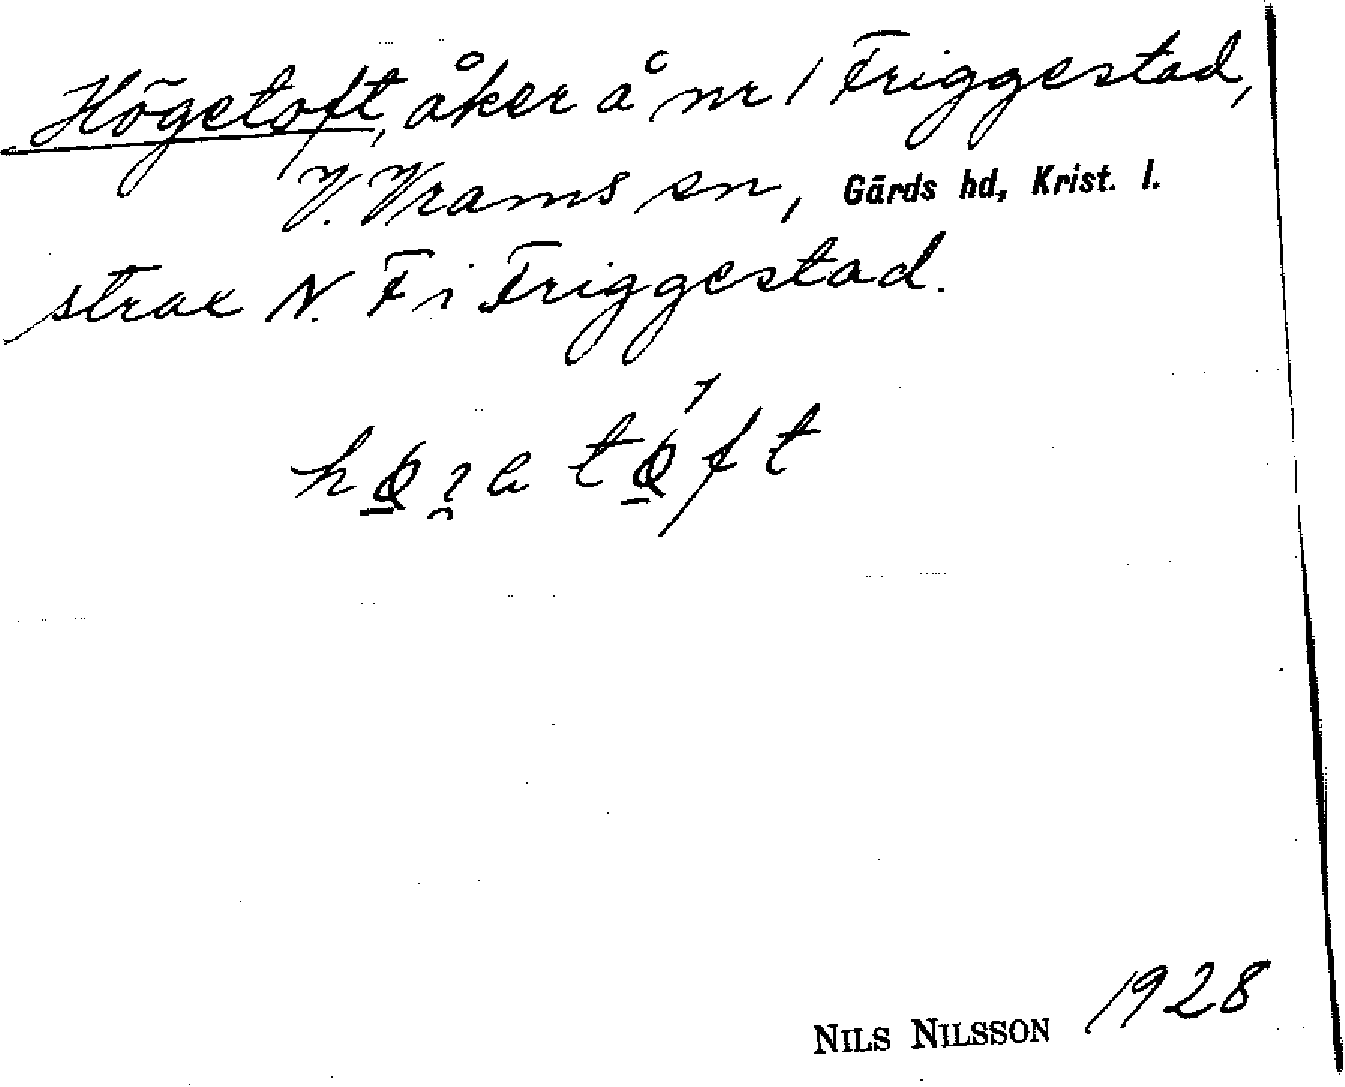 Högetoft, åker å nr 1 Friggestad,
V. Vrams sn, Gärds hd, Krist. l.
strax N. F i Friggestad.
NILS NILSSON 1928